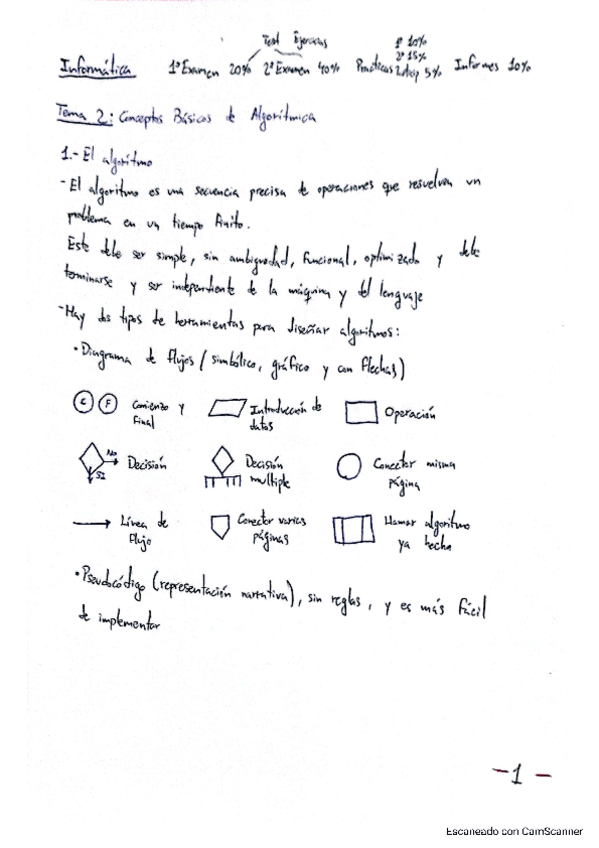 Test Ejercicios
1ª 10%
2ª 15%
Informática 1º Examen 20% 2º Examen 40% Practicas 5% Informes 10%
Tema 2: Conceptos Básicos de Algorítmica
1.- El algoritmo
-El algoritmo es una secuencia precisa de operaciones que resuelven un
problema en un tiempo finito.
Este debe ser simple, sin ambiguedad, funcional, optimizado y debe
terminarse y ser independiente de la máquina y del lenguaje
-Hay dos tipos de herramientas para diseñar algoritmos:
•Diagrama de flujos (simbólico, gráfico y con flechas)
C F Comienzo y
Final
Introducción de
datos
Operación
No
SI
Decisión
Decisión
multiple
Conector misma
página
Línea de
flujo
Conector varias
páginas
Llamar algoritmo
ya hecho
•Pseudocódigo (representación narrativa), sin reglas, y es más fácil
de implementar
-1-
Escaneado con CamScanner